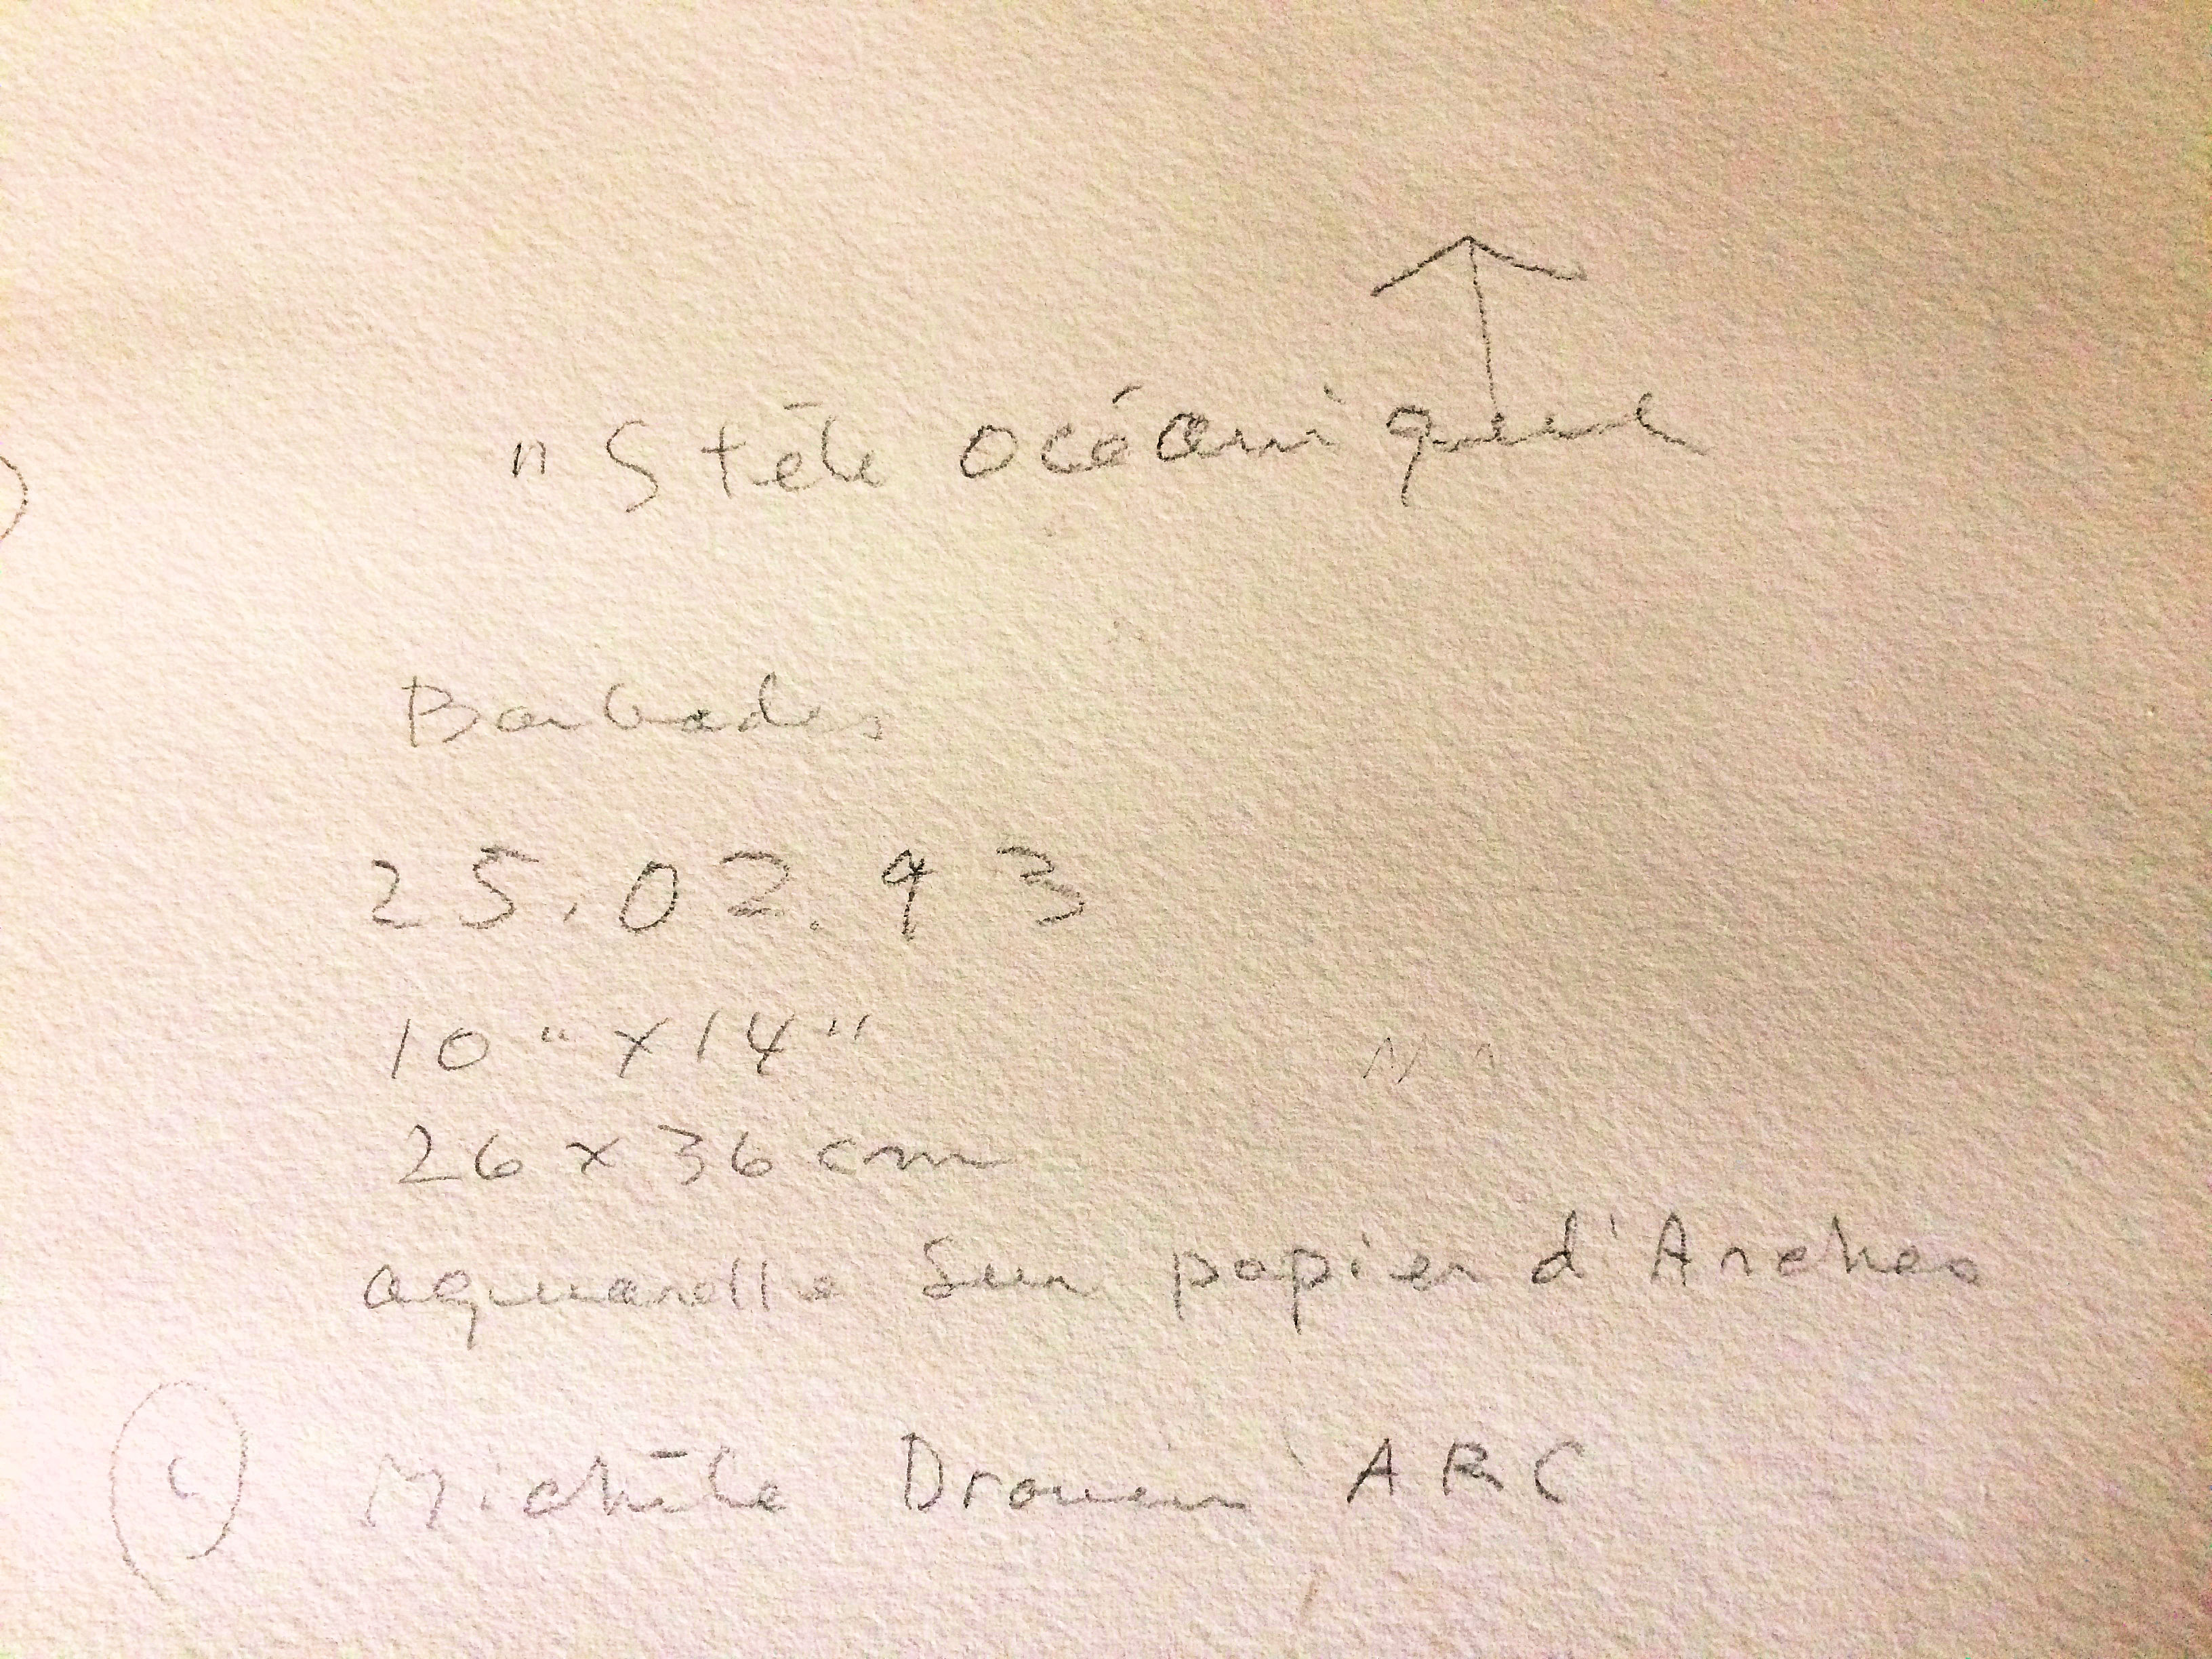 " Stèle océanique
Barbades
25.02.93
10" x 14"
26 x 36 cm
aquarelle sur papier d'Arches
© Michèle Drouin ARC